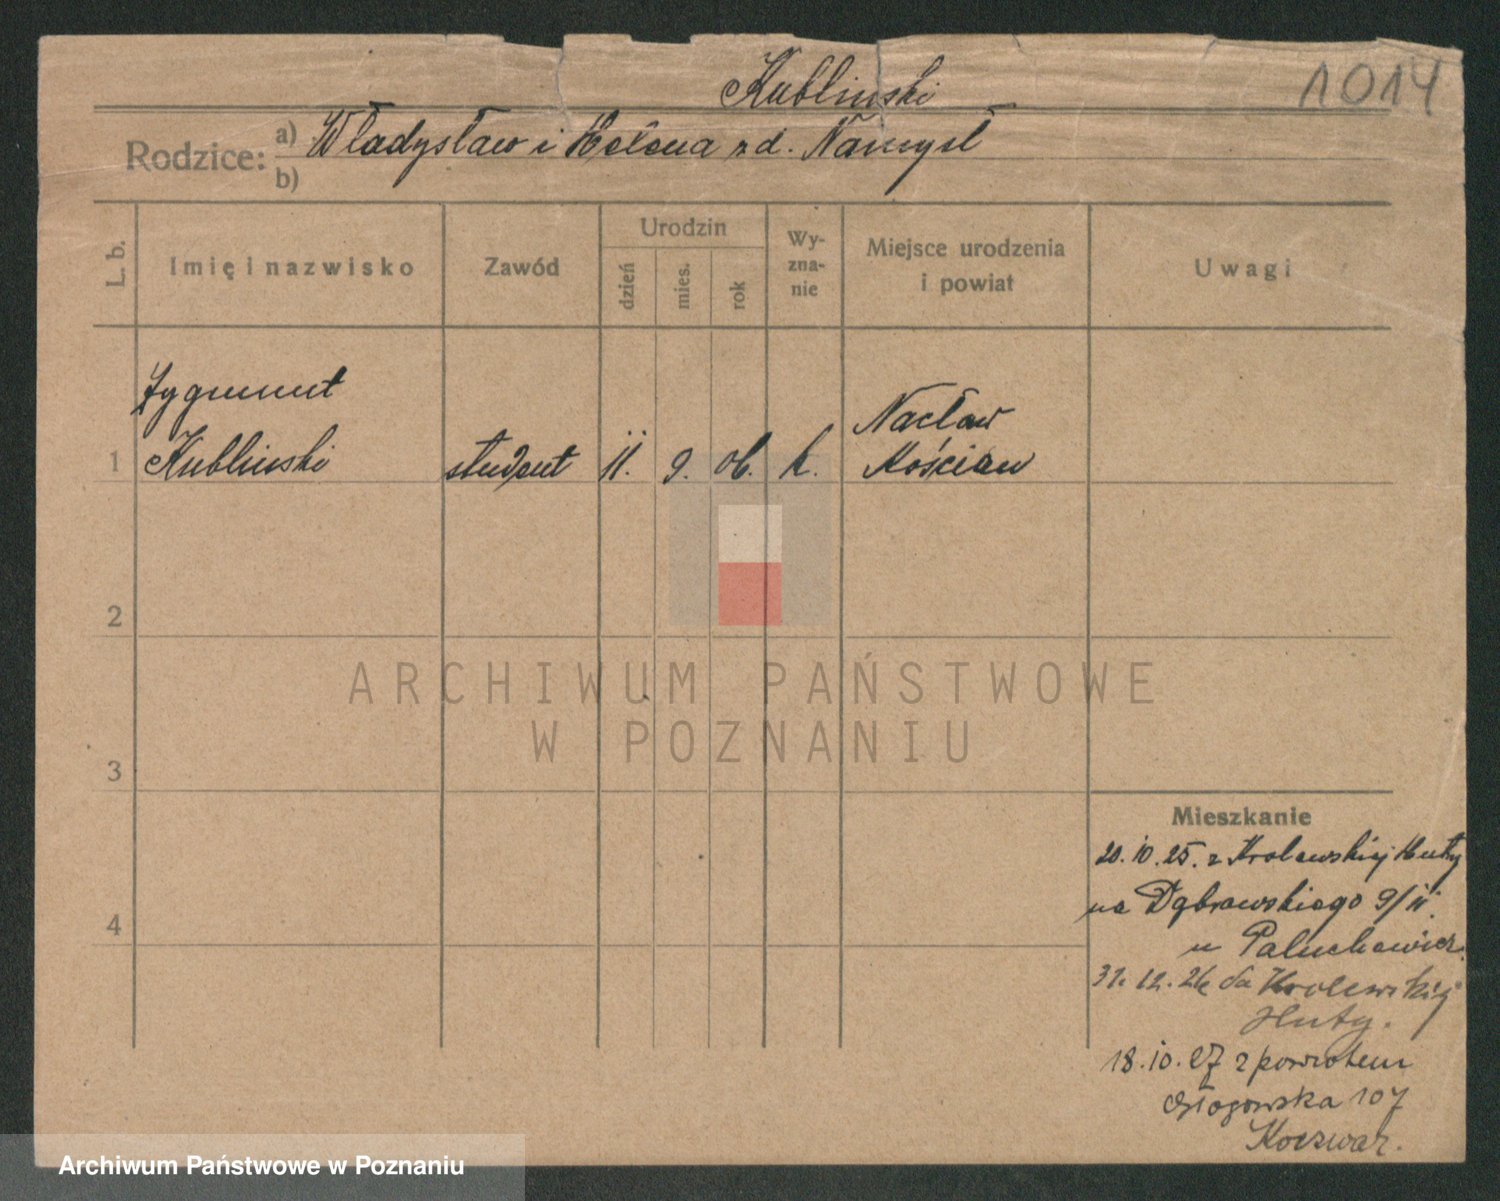 Kubliński
1014
Rodzice: a) Władysław i Helena zd. Namysł
b)
L. b. Imię i nazwisko Zawód Urodzin dzień mies. rok Wy-zna-nie Miejsce urodzenia i powiat Uwagi
Zygmunt
1 Kubliński student 11. 9. 06. k. Nacław
Kościan
2
3
4
ARCHIWUM PAŃSTWOWE
W POZNANIU
Mieszkanie
20.10.25. z Krolewskiej Huty
na Dąbrowskiego 9/II.
u Paluchowicz.
31.12.26 do Krolewskiej
Huty.
18.10.27 z powrotem
Głogowska 107
Koczwar.
Archiwum Państwowe w Poznaniu